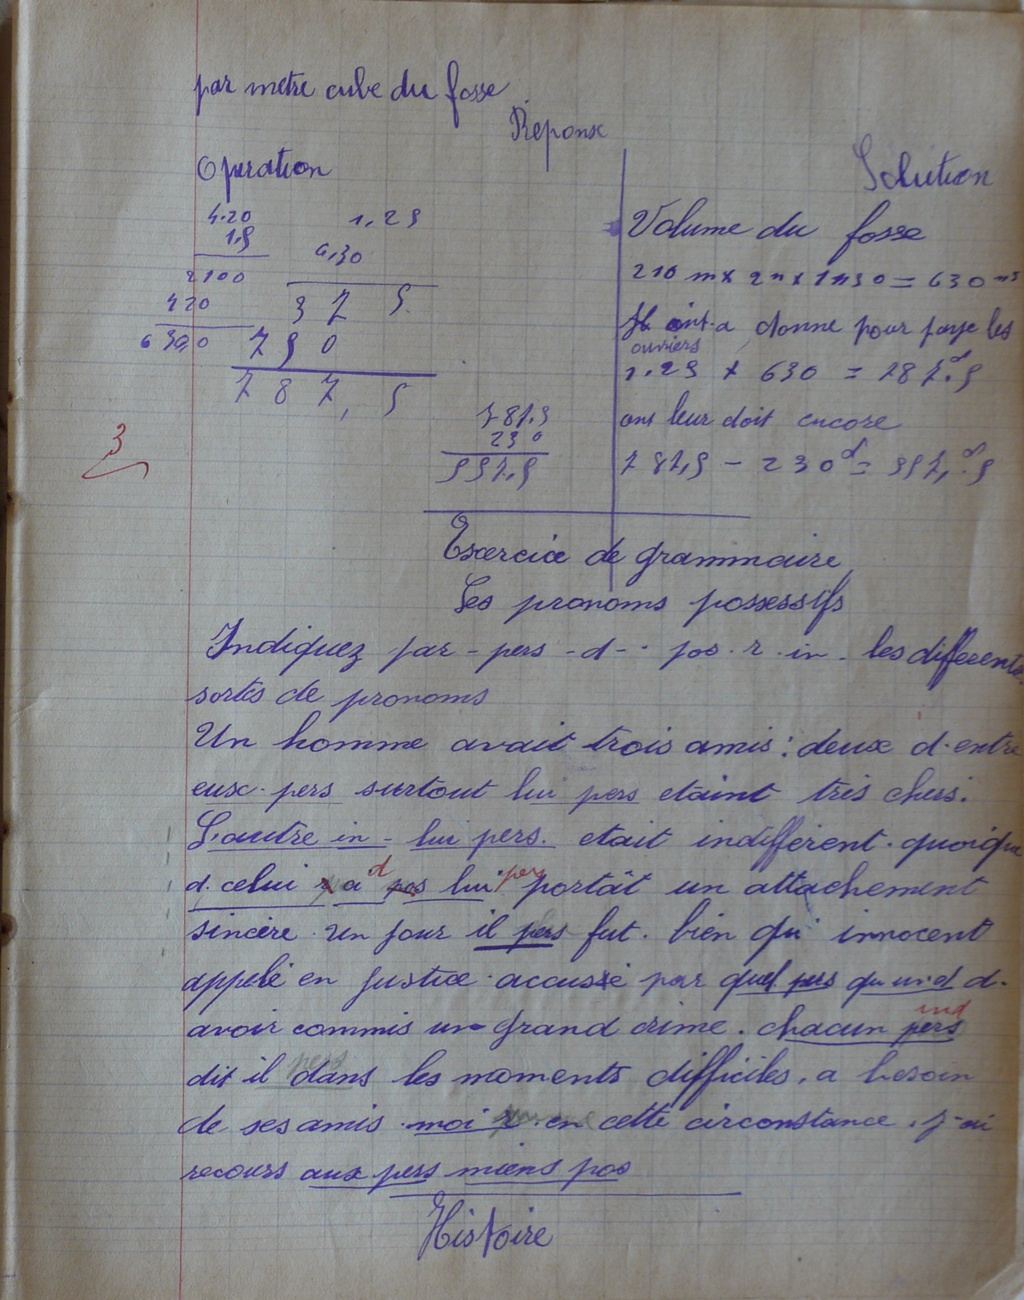 par metre cube du fosse
Réponse
Operation
4.20
1,5
2100
420
6300
1,25
6,30
3 7 5
7 5 0
7 8 7, 5
787.5
230
557,5
3
Solution
Volume du fosse
210 m x 2m x 1m50 = 630 m3
donne pour paye les
ouvriers
1.25 x 630 = 787.5
ont leur doit encore
787,5 - 230 = 557,5
Exercice de grammaire
Les pronoms possessifs
Indiquez par - pers - d - pos. r. in. les differents
sortes de pronoms
Un homme avait trois amis : deux d.entre
eux. pers surtout lui pers etaint très chers.
L'autre in - lui pers. etait indifférent. quoique
d. celui r a d pos lui pers portât un attachement
sincère. Un jour il pers fut. bien qui innocent
appelé en justice. accussé par quel pers qu un.d d.
avoir commis un grand crime. chacun pers ind
dit il dans pers les moments difficiles, a besoin
de ses amis. moi r en cette circonstance. j-ai
recours aux pers miens pos
Histoire